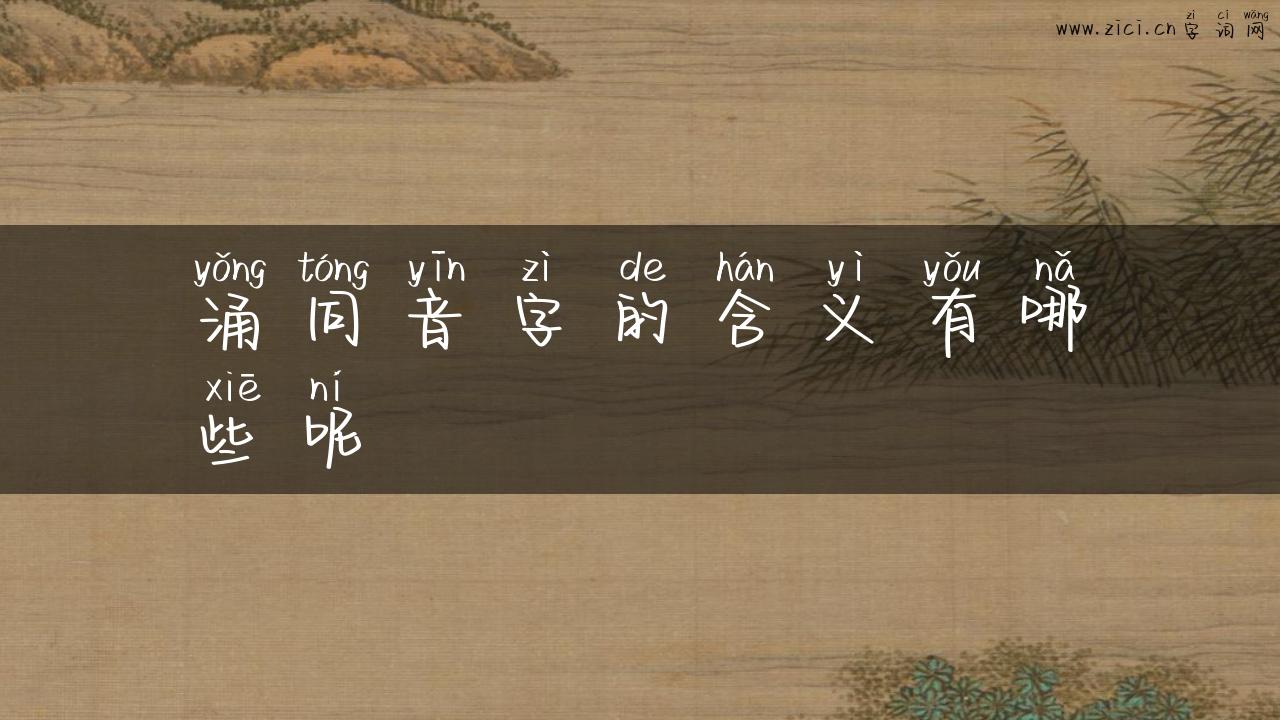 zì cí wǎng
www.zici.cn 字 词 网
yǒng tóng yīn zì de hán yì yǒu nǎ
涌 同 音 字 的 含 义 有 哪
xiē ní
些 呢